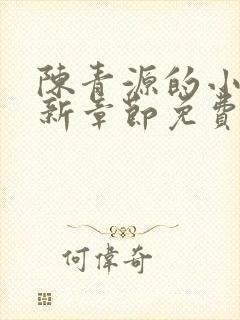 陳青源的小
新章節免費
何偉奇